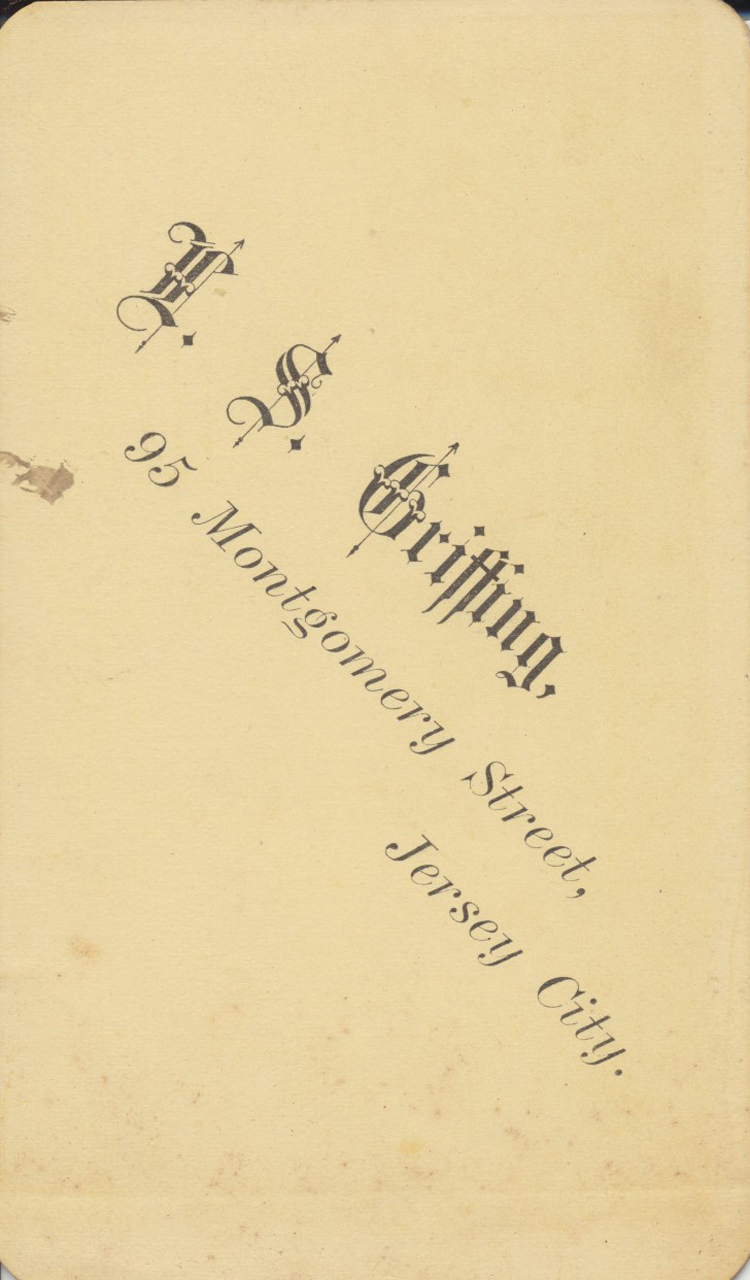 I. S. Griffing,
95 Montgomery Street,
Jersey City.